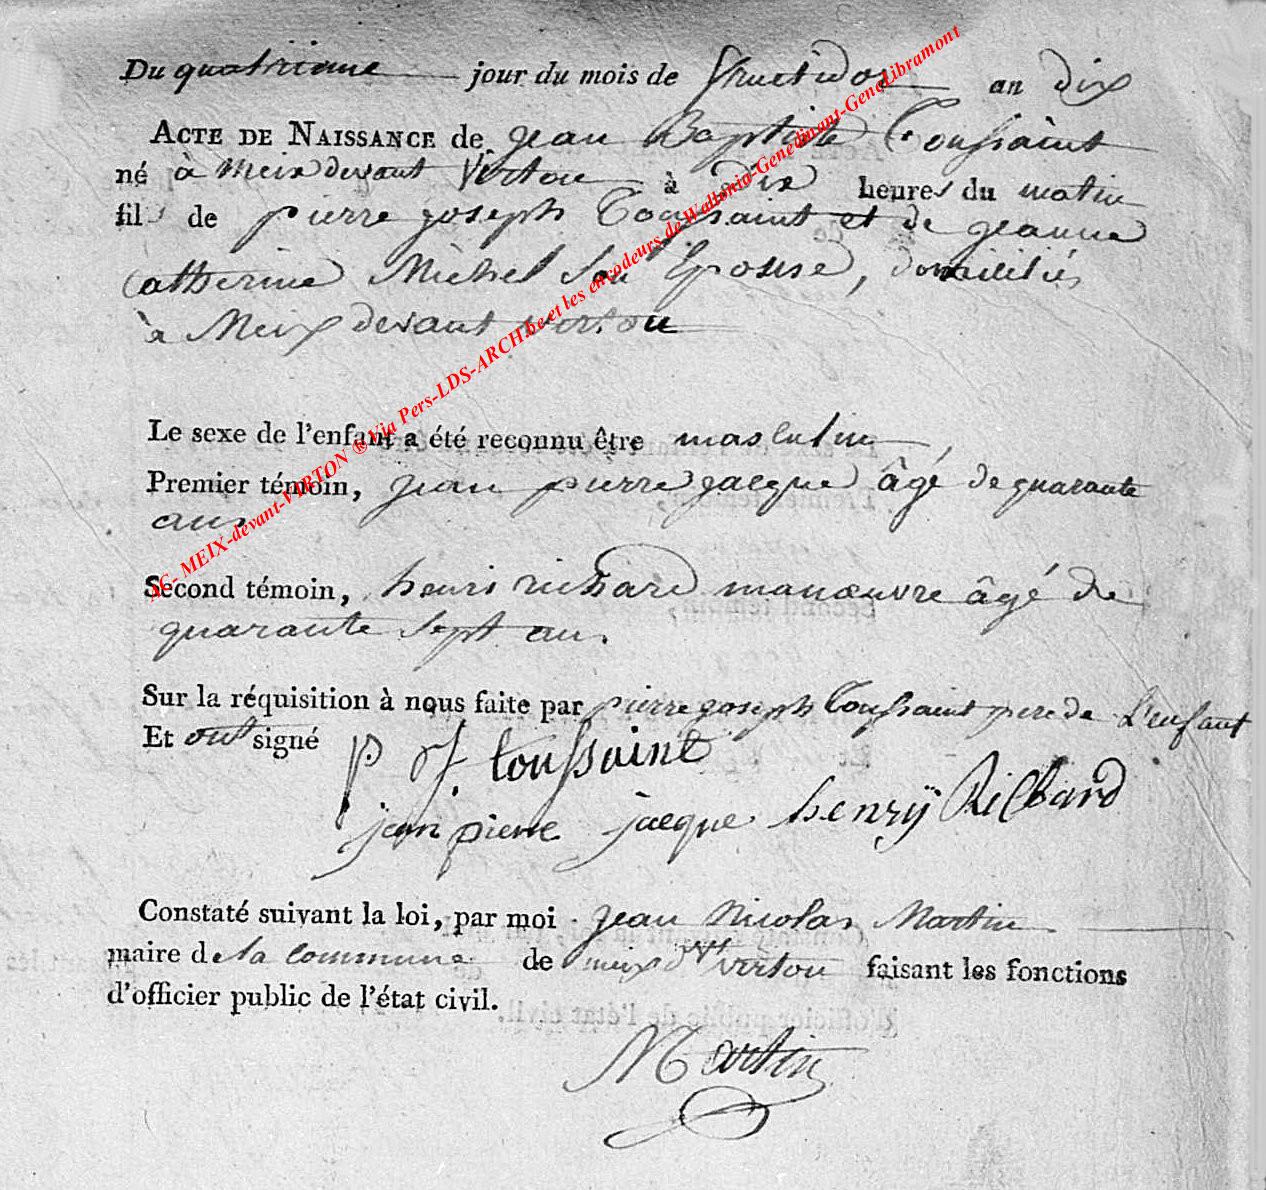 Du quatrieme jour du mois de fructidor an dix
Acte de Naissance de jean Baptiste Toussaint
né à Meix devant Virton à dix heures du matin
fils de pierre joseph Toussaint et de jeanne
Catherine Michel son Epouse, domiciliés
à Meix devant virton
Le sexe de l'enfant a été reconnu être masculin
Premier témoin, jean pierre jacque âgé de quarante
ans
Second témoin, henri richard manœuvre âgé de
quarante sept ans.
Sur la réquisition à nous faite par pierre joseph Toussaint pere de L'enfant
Et ont signé
p j toussaint
jean pierre jacque henrÿ Richard
Constaté suivant la loi, par moi jean Nicolas Martin
maire de la commune de meix dvt virton faisant les fonctions
d'officier public de l'état civil.
Martin
AC- MEIX-devant-VIRTON ® Via Pers-LDS-ARCH.be et les encodeurs de Wallonia-Genedinant-GeneLibramont